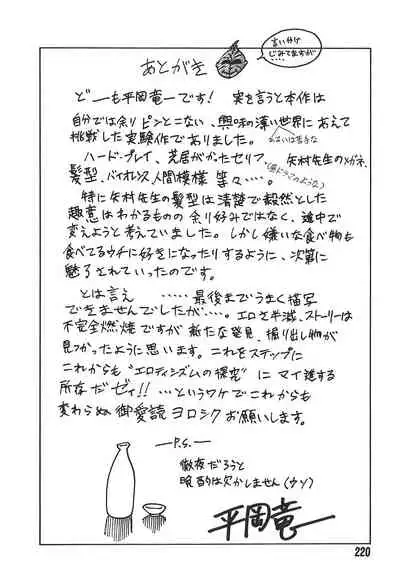 あとがき
言い分け
じみてますが…
どーも平岡竜一です! 実を言うと本作は
自分では余りピンとこない、興味の薄い世界にあえて
あるいは苦手な
挑戦した実験作でありました。
ハード・プレイ、芝居がかったセリフ、矢村先生のメガネ、
(昼ドラマのような)
髪型、バイオレンス、人間模様 等々…。
特に矢村先生の髪型は清楚で毅然とした
趣意はわかるものの 余り好みではなく、途中で
変えようと考えていました。しかし嫌いな食べ物も
食べてるウチに好きになったりするように、次第に
魅了されていったのです。
とは言え ……最後までうまく描写
できませんでしたが…。エロさ半減、ストーリーは
不完全燃焼ですが 新たな発見、掘り出し物が
見つかったように思います。これをステップに
これからも“エロティシズムの探究”に マイ進する
所存だゼィ!! …というワケでこれからも
変わらぬ御愛読ヨロシクお願いします。
—P.S.—
徹夜だろうと
晩酌は欠かしません(ウソ)
平岡竜一
220